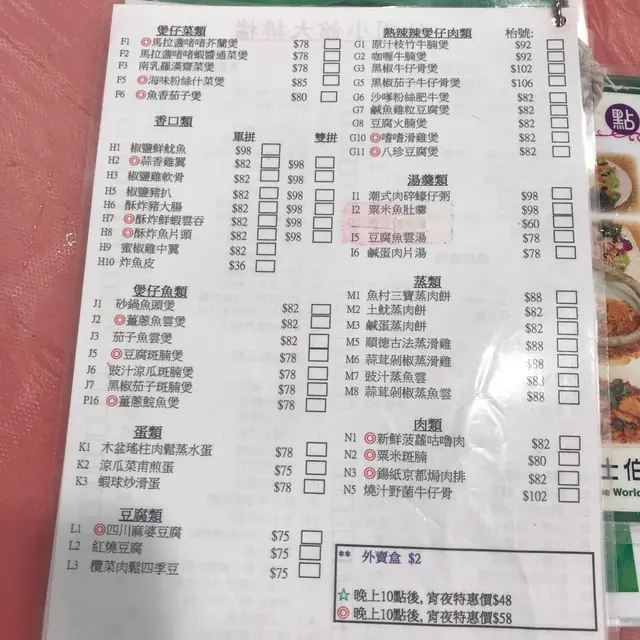 煲仔菜類
F1 ◎馬拉盞啫啫芥蘭煲 $78
F2 馬拉盞啫啫蝦醬通菜煲 $78
F3 南乳羅漢齋菜煲 $78
F5 ◎海味粉絲什菜煲 $85
F6 ◎魚香茄子煲 $80
香口類
單拼 雙拼
H1 椒鹽鮮魷魚 $98
H2 ◎蒜香雞翼 $82 $98
H3 椒鹽雞軟骨 $82 $98
H5 椒鹽豬扒 $82 $98
H6 酥炸豬大腸 $82 $98
H7 ◎酥炸鮮蝦雲吞 $82 $98
H8 ◎酥炸魚片頭 $82 $98
H9 蜜椒雞中翼 $82
H10 炸魚皮 $36
煲仔魚類
J1 砂鍋魚頭煲 $82
J2 ◎薑蔥魚雲煲 $82
J3 茄子魚雲煲 $82
J5 ◎豆腐斑腩煲 $78
J6 豉汁涼瓜斑腩煲 $78
J7 黑椒茄子斑腩煲 $78
P16 ◎薑蔥鯇魚煲 $78
蛋類
K1 木盆瑤柱肉鬆蒸水蛋 $78
K2 涼瓜菜甫煎蛋 $75
K3 蝦球炒滑蛋 $78
豆腐類
L1 ◎四川麻婆豆腐 $75
L2 紅燒豆腐 $75
L3 欖菜肉鬆四季豆 $75
熱辣辣煲仔肉類 枱號:
G1 原汁枝竹牛腩煲 $92
G2 咖喱牛腩煲 $92
G3 黑椒牛仔骨煲 $102
G5 黑椒茄子牛仔骨煲 $106
G6 沙嗲粉絲肥牛煲 $82
G7 鹹魚雞粒豆腐煲 $82
G8 豆腐火腩煲 $82
G10 ◎啫啫滑雞煲 $82
G11 ◎八珍豆腐煲 $82
湯羹類
I1 潮式肉碎蠔仔粥 $98
I2 粟米魚肚羹 $98
$60
I5 豆腐魚雲湯 $78
I6 鹹蛋肉片湯 $78
蒸類
M1 魚村三寶蒸肉餅 $88
M2 土魷蒸肉餅 $82
M3 鹹蛋蒸肉餅 $82
M5 順德古法蒸滑雞 $88
M6 蒜茸剁椒蒸滑雞 $88
M7 豉汁蒸魚雲 $88
M8 蒜茸剁椒蒸魚雲 $88
肉類
N1 ◎新鮮菠蘿咕嚕肉 $82
N2 ◎粟米斑腩 $80
N3 ◎錫紙京都焗肉排 $82
N5 燒汁野菌牛仔骨 $102
** 外賣盒 $2
☆ 晚上10點後, 宵夜特惠價$48
◎ 晚上10點後, 宵夜特惠價$58
點
士伯
he World